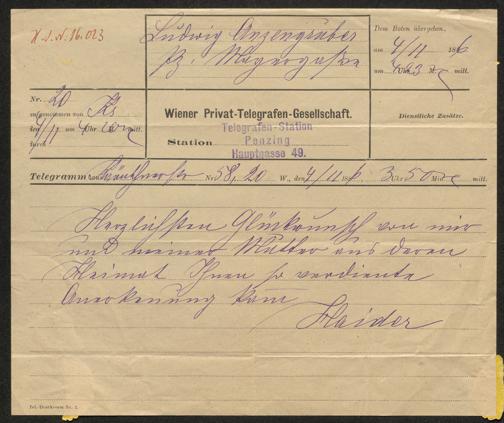 H.I.N. 16.023
Ludwig Anzengruber
Pz. Mayergasse
Dem Boten übergeben,
am 4/11 186
um 4 Uhr 23 M. mitt.
Nr. 20
aufgenommen von Ks
den 4/11 um 4 Uhr mitt.
durch
Wiener Privat-Telegrafen-Gesellschaft.
Station
Telegrafen-Station
Penzing
Hauptgasse 49.
Dienstliche Zusätze.
Telegramm von Nr. 58, 20 W., den 4/11 186 3 Uhr 50 Min. mitt.
Herzlichsten Glückwunsch von mir
und meiner Mutter aus deren
Heimat Ihnen so verdiente
Anerkenung kam
Haider